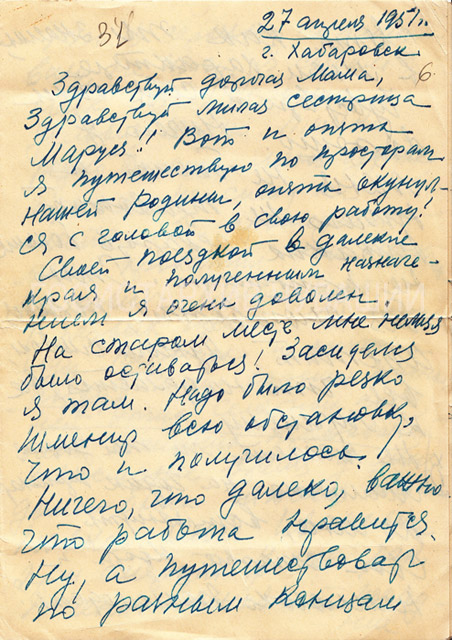 27 апреля 1951 г.
32
г. Хабаровск
6
Здравствуй дорогая Мама,
Здравствуй милая сестрица
Маруся! Вот и опять
я путешествую по просторам
нашей Родины, опять окунул-
ся с головой в свою работу!
Своей поездкой в далекие
края и полученным назначе-
нием я очень доволен.
На старом месте мне нельзя
было оставаться! Засиделся
я там. Надо было резко
изменить всю обстановку,
что и получилось.
Ничего, что далеко, важно
что работа нравится.
Ну, а путешествовать
по разным концам